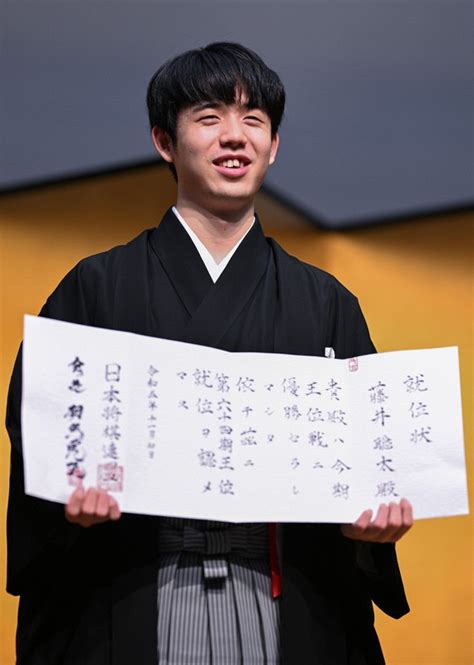 就位状
藤井聡太殿
貴殿ハ今期
王位戦ニ
優勝セラレ
マシタ
依テ茲ニ
第六十四期王位
就位ヲ認メ
マス
令和五年十一月
日本将棋連盟
会長 羽生善治